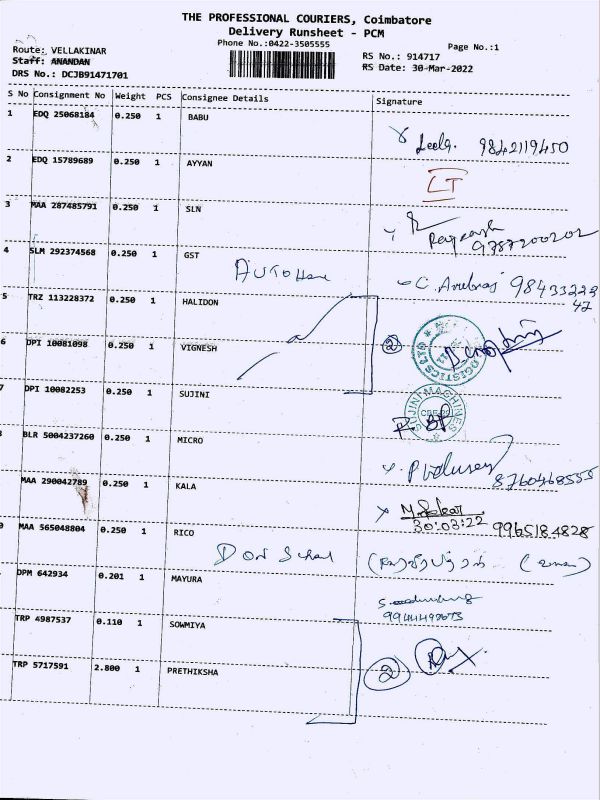 THE PROFESSIONAL COURIERS, Coimbatore
Delivery Runsheet - PCM
Phone No.:0422-3505555
Page No.:1
Route: VELLAKINAR
Staff: ANANDAN
DRS No.: DCJB91471701
RS No.: 914717
RS Date: 30-Mar-2022
S No Consignment No Weight PCS Consignee Details Signature
1 EDQ 25068184 0.250 1 BABU
Leela. 9842119450
2 EDQ 15789689 0.250 1 AYYAN
LT
3 MAA 287485791 0.250 1 SLN
9787200202
4 SLM 292374568 0.250 1 GST
C. 98433223
42
5 TRZ 113228372 0.250 1 HALIDON
6 DPI 10081098 0.250 1 VIGNESH
2
7 DPI 10082253 0.250 1 SUJINI
SUJINI MACHINES
8 BLR 5004237260 0.250 1 MICRO
8760468555
MAA 290042789 0.250 1 KALA
30:03:22 9965184828
0 MAA 565048804 0.250 1 RICO
DPM 642934 0.201 1 MAYURA
TRP 4987537 0.110 1 SOWMIYA
TRP 5717591 2.800 1 PRETHIKSHA
2